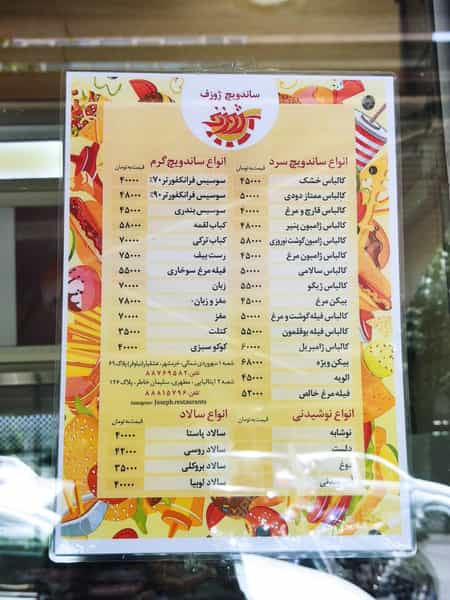 ساندویچ ژوزف
ژوزف
انواع ساندویچ سرد
قیمت به تومان
کالباس خشک ۴۵۰۰۰
کالباس ممتاز دودی ۵۰۰۰۰
کالباس قارچ و مرغ ۴۰۰۰۰
کالباس ژامبون پنیر ۴۸۰۰۰
کالباس ژامبون گوشت نوروزی ۵۸۰۰۰
کالباس ژامبون مرغ ۴۵۰۰۰
کالباس سالامی ۵۰۰۰۰
کالباس ژیگو ۵۵۰۰۰
بیکن مرغ ۴۵۰۰۰
کالباس فیله گوشت و مرغ ۵۰۰۰۰
کالباس فیله بوقلمون ۵۵۰۰۰
کالباس ژامبریل ۶۰۰۰۰
بیکن ویژه ۶۸۰۰۰
الویه ۴۵۰۰۰
فیله مرغ خالص ۵۲۰۰۰
انواع نوشیدنی
قیمت به تومان
نوشابه
دلستر
دوغ
انواع ساندویچ گرم
قیمت به تومان
سوسیس فرانکفورتر ۷۰٪ ۴۰۰۰۰
سوسیس فرانکفورتر ۹۰٪ ۴۸۰۰۰
سوسیس بندری ۴۵۰۰۰
کباب لقمه ۵۸۰۰۰
کباب ترکی ۷۰۰۰۰
رست بیف ۷۵۰۰۰
فیله مرغ سوخاری ۵۵۰۰۰
زبان ۷۸۰۰۰
مغز و زبان ۷۸۰۰۰
مغز ۷۰۰۰۰
کتلت ۳۵۰۰۰
کوکو سبزی ۴۰۰۰۰
شعبه ۱ سهروردی شمالی، خرمشهر، عشقیار (نیلوفر) پلاک ۶۹
تلفن: ۸۸۷۶۹۵۸۲
شعبه ۲ ایتالیایی، مطهری، سلیمان خاطر، پلاک ۱۴۶
تلفن: ۸۸۸۱۵۲۹۶
instagram: Joseph.restaurants
انواع سالاد
قیمت به تومان
سالاد پاستا ۴۰۰۰۰
سالاد روسی ۴۲۰۰۰
سالاد بروکلی ۳۵۰۰۰
سالاد لوبیا ۴۰۰۰۰